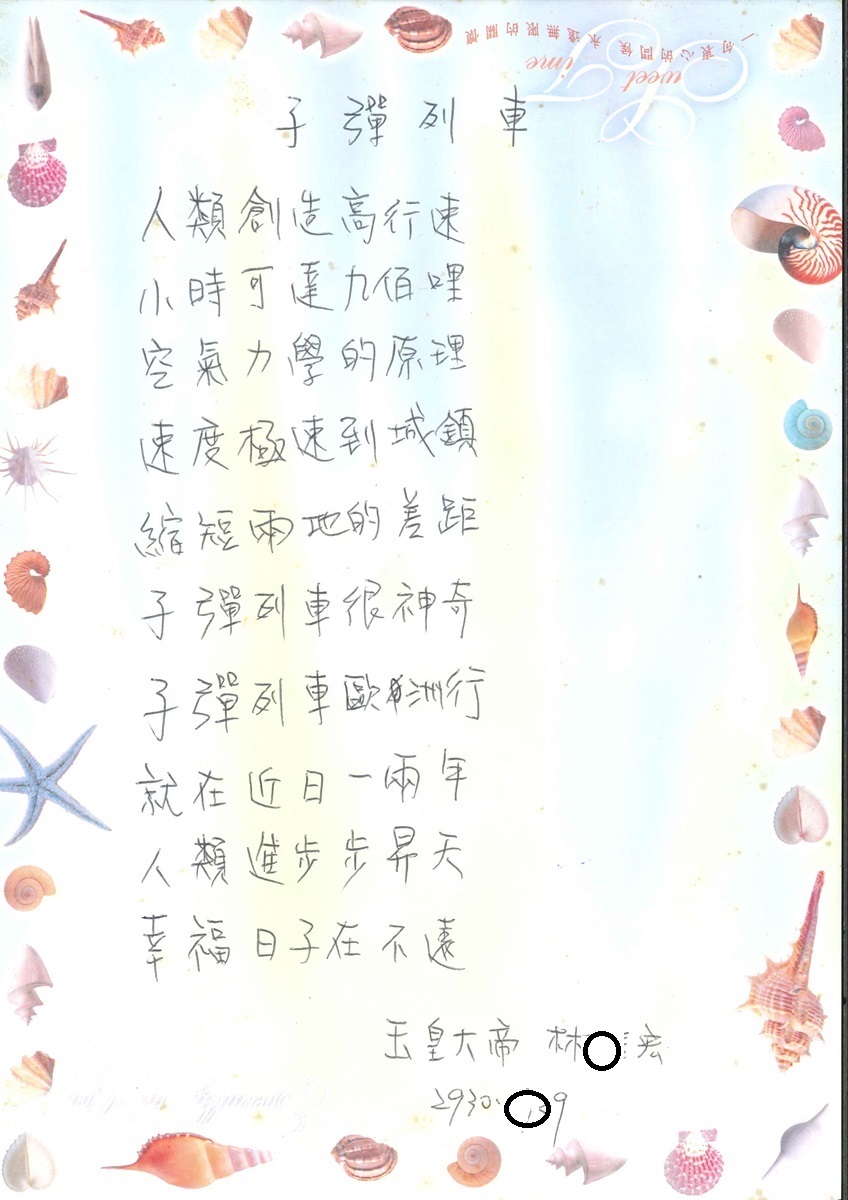 一句衷心的問候 永遠無限的關懷
Sweet Time
子彈列車
人類創造高行速
小時可達九佰哩
空氣力學的原理
速度極速到城鎮
縮短兩地的差距
子彈列車很神奇
子彈列車歐洲行
就在近日一兩年
人類進步步昇天
幸福日子在不遠
玉皇大帝 林 宏
2930. 9